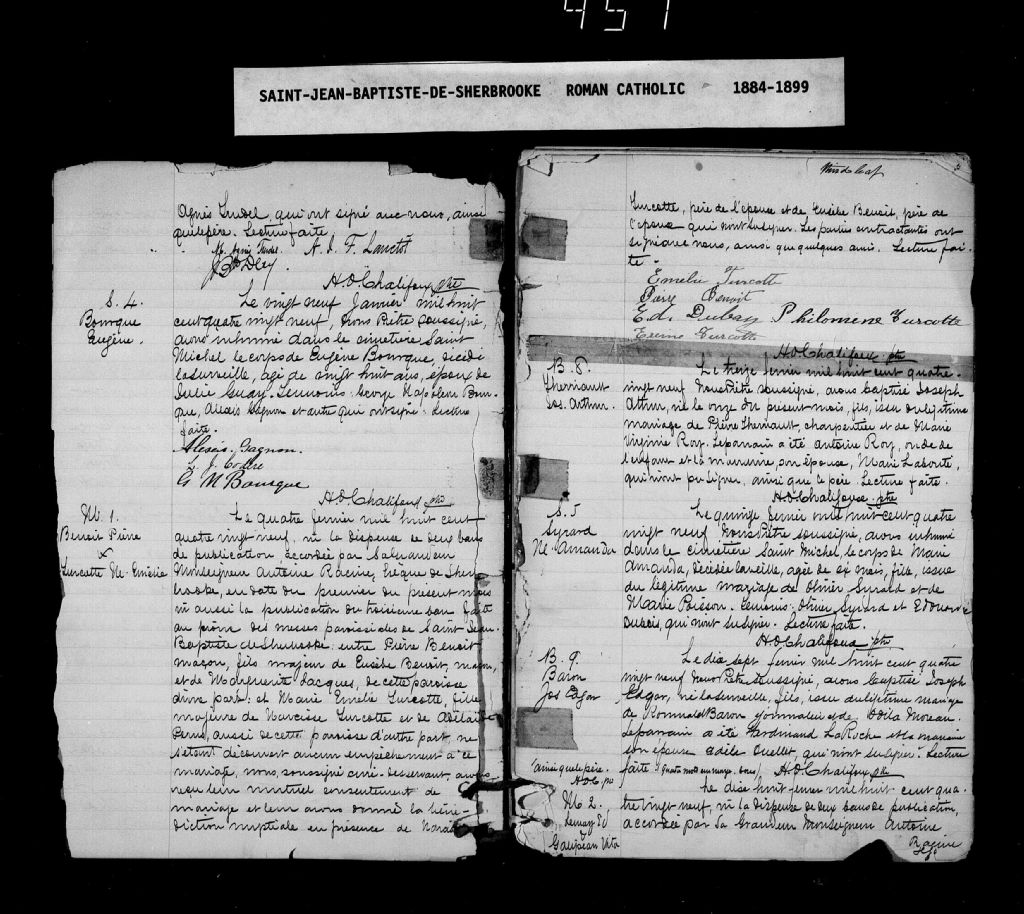 457
SAINT-JEAN-BAPTISTE-DE-SHERBROOKE ROMAN CATHOLIC 1884-1899
Agnès Trudel, qui ont signé avec nous, ainsi
que le père. Lecture faite.
A. J. F. Lanctôt
H. O. Chalifoux ptre
S. 4.
Bourque
Eugène.
Le vingt neuf Janvier mil huit
cent quatre vingt neuf, Nous Prêtre soussigné,
avons inhumé dans le cimetière Saint
Michel le corps de Eugène Bourque, décédé
la surveille, agé de vingt huit ans, époux de
Julie Guay. Temoins: George Napoléon Bour-
que, Alexis Gagnon et autre qui ont signé. Lecture
faite.
Alexis Gagnon.
G N Bourque
H. O. Chalifoux ptre
M. 1.
Benoit Pierre
&
Turcotte M. Emélie
Le quatre fevrier mil huit cent
quatre vingt neuf, vu la dispense de deux bans
de publication accordée par Sa Grandeur
Monseigneur Antoine Racine, Evêque de Sher-
brooke, en date du premier du présent mois
vu aussi la publication du troisième ban faite
au prône des messes paroissiales de Saint Jean
Baptiste de Sherbrooke entre Pierre Benoit
maçon, fils majeur de Eusèbe Benoit, maçon,
et de Marguerite Jacques, de cette paroisse
d'une part; et Marie Emélie Turcotte, fille
majeure de Narcisse Turcotte et de Adelaide
aussi de cette paroisse d'autre part, ne
s'étant découvert aucun empêchement à ce
mariage, nous, soussigné curé-desservant, avons
reçu leur mutuel consentement de
mariage et leur avons donné la béné-
diction nuptiale en présence de Narcisse
Turcotte, père de l'épouse et de Eusèbe Benoit, père de
l'époux qui n'ont su signer. Les parties contractantes ont
signé avec nous, ainsi que quelques amis. Lecture fai-
te.
Emelie Turcotte
Benoit
Ed. Dubay Philomene Turcotte
Turcotte
H. O. Chalifoux ptre
B. 8.
Therriault
Jos. Arthur.
Le treize fevrier mil huit cent quatre
vingt neuf Nous Prêtre soussigné, avons baptisé Joseph
Arthur, né le onze du présent mois, fils, issu du légitime
mariage de Pierre Therriault, charpentier et de Marie
Virginie Roy. Le parrain a été Antoine Roy, oncle de
l'enfant et la marraine son épouse, Marie Laborite,
qui n'ont pu signer, ainsi que le père. Lecture faite.
H. O. Chalifoux ptre
S. 5
Syrard
M. Amanda
Le quinze fevrier mil huit cent quatre
vingt neuf Nous Prêtre soussigné, avons inhumé
dans le cimetière Saint Michel, le corps de Marie
Amanda, décédée la veille, agée de six mois, fille, issue
du légitime mariage de Olivier Syrard et de
Marie Poisson. Temoins: Olivier Syrard et Edouard
Dubois, qui n'ont su signer. Lecture faite.
H. O. Chalifoux ptre
B. 9.
Baron
Jos Edgar
Le dix sept fevrier mil huit cent quatre
vingt neuf Nous Prêtre soussigné, avons baptisé Joseph
Edgar, né la surveille, fils, issu du légitime mariage
de Romuald Baron journalier et de Odila Moreau.
Le parrain a été Ferdinand LaRoche et la marraine
son épouse Odile Ouellet, qui n'ont su signer. Lecture
faite H. O. Chalifoux ptre
ainsi que le père.
H O C ptre
M 2.
&
Galipeau Vita
Le dix huit fevrier mil huit cent qua-
tre vingt neuf, vu la dispense de deux bans de publication,
accordée par Sa Grandeur Monseigneur Antoine
Racine